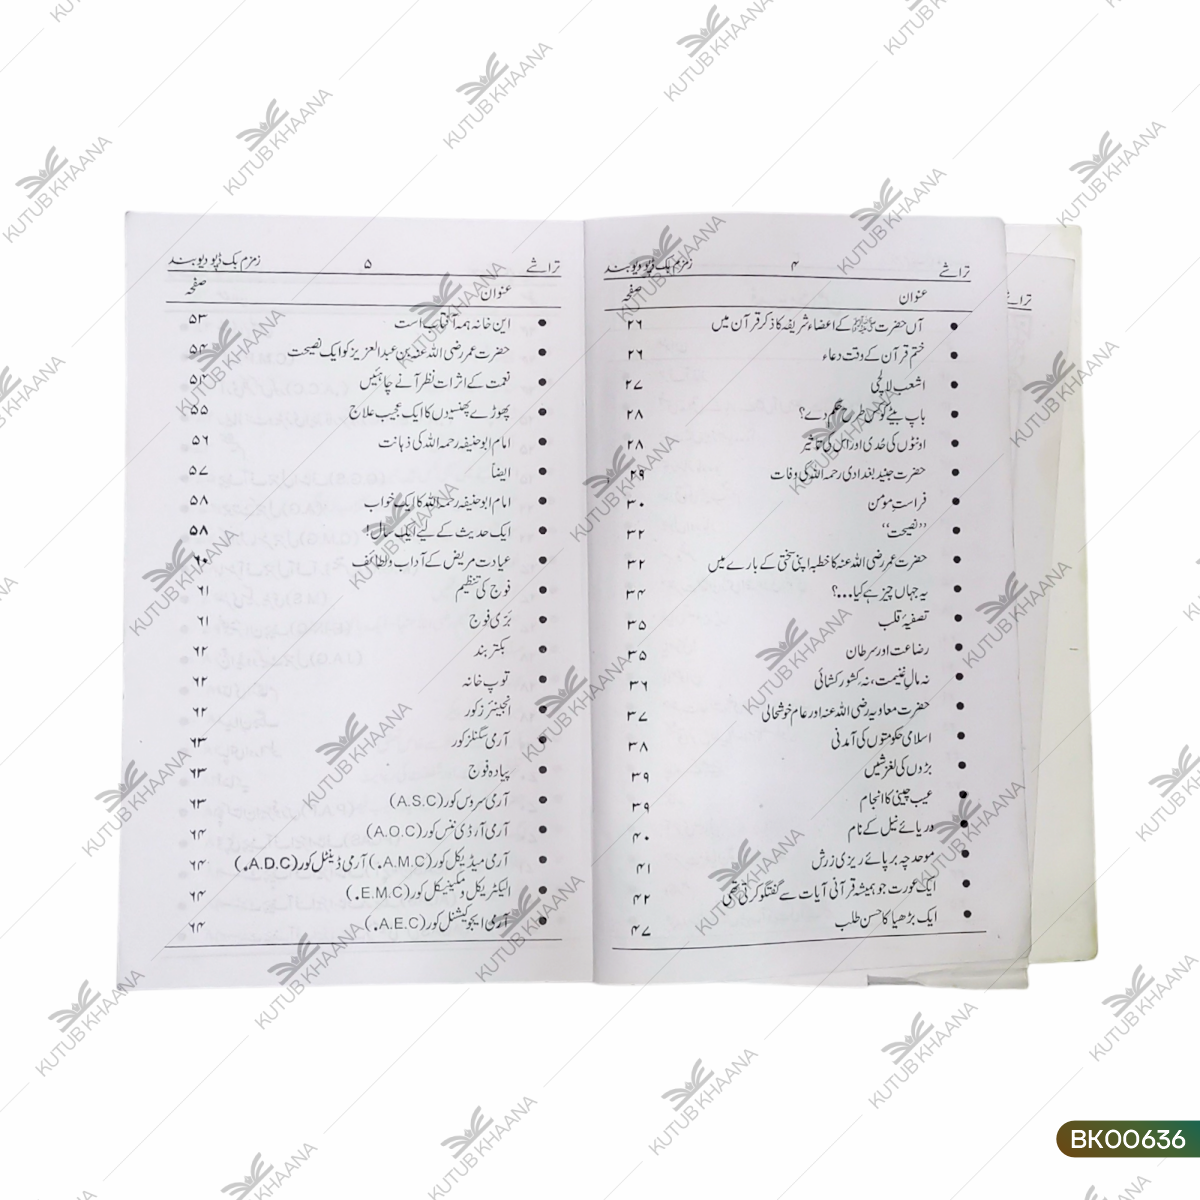 تراشے ۴ زمزم بک ڈپو دیوبند
عنوان صفحہ
● آں حضرت ﷺ کے اعضاء شریفہ کا ذکر قرآن میں ۲۶
● ختم قرآن کے وقت دعاء ۲۶
● اشعب لالچی ۲۷
● باپ بیٹے کو کس طرح حکم دے؟ ۲۸
● اونٹوں کی حُدی اور اس کی تاثیر ۲۸
● حضرت جنید بغدادی رحمہ اللہ کی وفات ۲۹
● فراستِ مؤمن ۳۰
● ’’نصیحت‘‘ ۳۲
● حضرت عمر رضی اللہ عنہ کا خطبہ اپنی سختی کے بارے میں ۳۲
● یہ جہاں چیز ہے کیا...؟ ۳۴
● تصفیۂ قلب ۳۵
● رضاعت اور سرطان ۳۵
● نہ مالِ غنیمت، نہ کشور کشائی ۳۶
● حضرت معاویہ رضی اللہ عنہ اور عام خوشحالی ۳۷
● اسلامی حکومتوں کی آمدنی ۳۸
● بڑوں کی لغزشیں ۳۹
● عیب چینی کا انجام ۳۹
● دریائے نیل کے نام ۴۰
● موحد چہ بر پائے ریزی زرش ۴۱
● ایک عورت جو ہمیشہ قرآنی آیات سے گفتگو کرتی تھی ۴۲
● ایک بڑھیا کا حسن طلب ۴۷
تراشے ۵ زمزم بک ڈپو دیوبند
عنوان صفحہ
● این خانہ ہمہ آفتاب است ۵۳
● حضرت عمر رضی اللہ عنہ بن عبدالعزیز کو ایک نصیحت ۵۴
● نعمت کے اثرات نظر آنے چاہئیں ۵۴
● پھوڑے پھنسیوں کا ایک عجیب علاج ۵۵
● امام ابو حنیفہ رحمہ اللہ کی ذہانت ۵۶
● ایضاً ۵۷
● امام ابو حنیفہ رحمہ اللہ کا ایک خواب ۵۸
● ایک حدیث کے لیے ایک سال! ۵۸
● عیادت مریض کے آداب و لطائف ۶۰
● فوج کی تنظیم ۶۱
● بَرّی فوج ۶۱
● بکتر بند ۶۲
● توپ خانہ ۶۲
● انجینئرز کور ۶۲
● آرمی سگنلز کور ۶۳
● پیادہ فوج ۶۳
● آرمی سروس کور (A.S.C) ۶۳
● آرمی آرڈی ننس کور (A.O.C) ۶۴
● آرمی میڈیکل کور (A.M.C.) آرمی ڈینٹل کور (A.D.C.) ۶۴
● الیکٹریکل و مکینیکل کور (E.M.C.) ۶۴
● آرمی ایجوکیشنل کور (A.E.C.) ۶۴
KUTUB KHAANA
BK00636